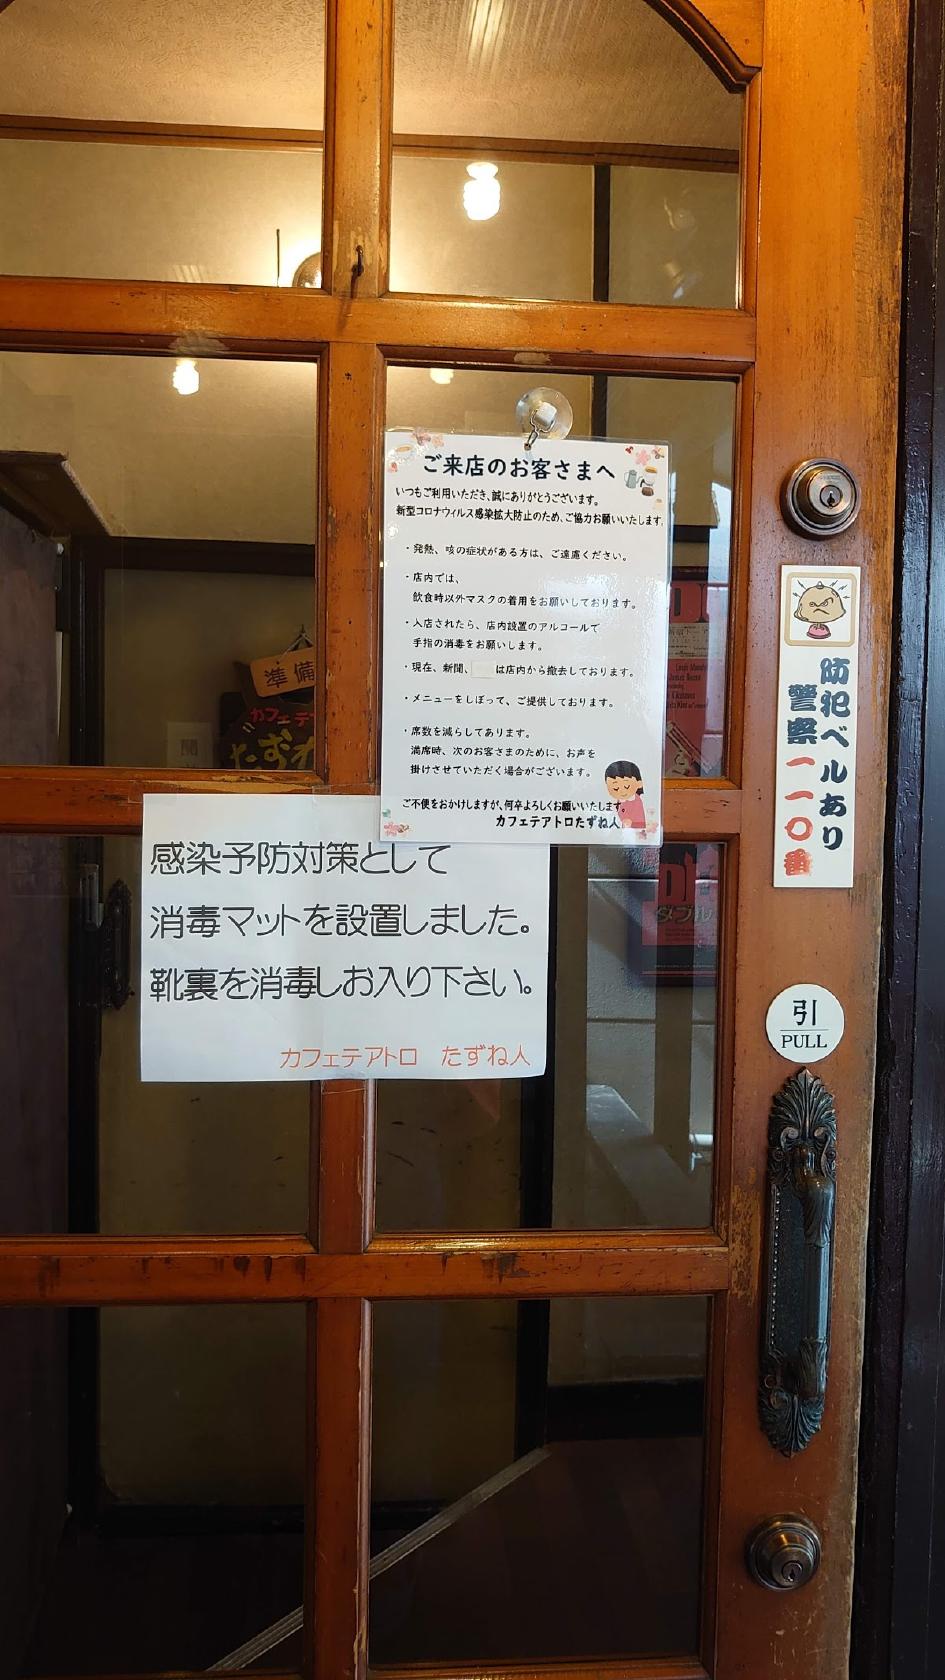 ご来店のお客さまへ
いつもご利用いただき、誠にありがとうございます。
新型コロナウィルス感染拡大防止のため、ご協力お願いいたします。
・発熱、咳の症状がある方は、ご遠慮ください。
・店内では、
飲食時以外マスクの着用をお願いしております。
・入店されたら、店内設置のアルコールで
手指の消毒をお願いします。
・現在、新聞、は店内から撤去しております。
・メニューをしぼって、ご提供しております。
・席数を減らしてあります。
満席時、次のお客さまのために、お声を
掛けさせていただく場合がございます。
ご不便をおかけしますが、何卒よろしくお願いいたします。
カフェテアトロたずね人
感染予防対策として
消毒マットを設置しました。
靴裏を消毒しお入り下さい。
カフェテアトロ たずね人
防犯ベルあり
警察一一〇番
引
PULL
準備
カフェテ
たずね
ダブル